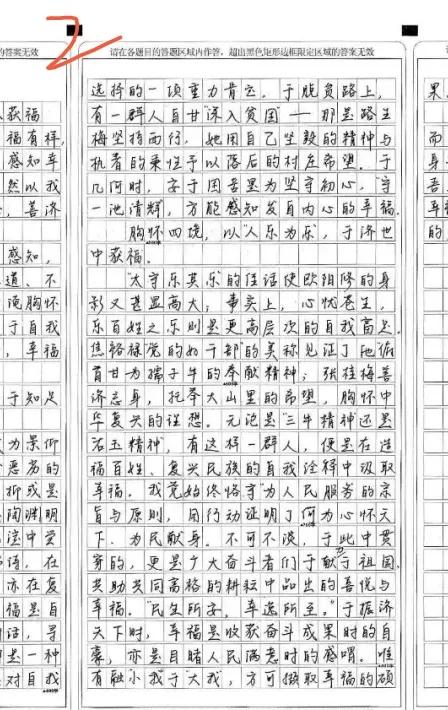 的答案无效
请在各题目的答题区域内作答，超出黑色矩形边框限定区域的答案无效
获福
福有样，
感知幸
然以我
，善济
感知，
道、不
范胸怀
于自我
，幸福
于知足
为景仰
恶名的
抑或是
陶渊明
法中蒙
诗语，在
亦在复
福是自
话，寻
是一种
对自我
选择的一项重力肯云，于脱贫路上，
有一群人自甘“深入贫困”——那是路生
梅坚持西行，她用自己坚毅的精神与
执着的秉性予以落后的村庄希望。于
几何时，安于困苦里为坚守初心，“守
一池清辉，方能感知发自内心的幸福。
胸怀四境，以“人乐为乐”，于济世
中获福。
“太守乐其乐”的佳话使欧阳修的身
影又甚显高大；事实上，心忧苍生，
乐百姓之乐则是更高层次的自我富足。
焦裕禄“党的好干部”的美称见证了他俯
首甘为孺子牛的奉献精神；张桂梅善
济忘身，托举大山里的希望，胸怀中
华复兴的理想。无论是“三牛精神”还是
有这样一群人，便是在造
福百姓、复兴民族的自我诠释中汲取
幸福。我党始终恪守“为人民服务的宗
旨与原则，用行动证明了何为心怀天
下、为民献身。不可不谈，于此中贯
穿的，更是广大奋斗者们于献力于祖国、
共助共同富裕的耕耘中品出的喜悦与
幸福。“民生所安，幸逸所至。”于振济
天下时，幸福是收获奋斗成果时的自
豪，亦是目睹人民满意时的感喟。唯
有融“小我”于“大我”，方可撷取幸福的硕
果
而
身
吾